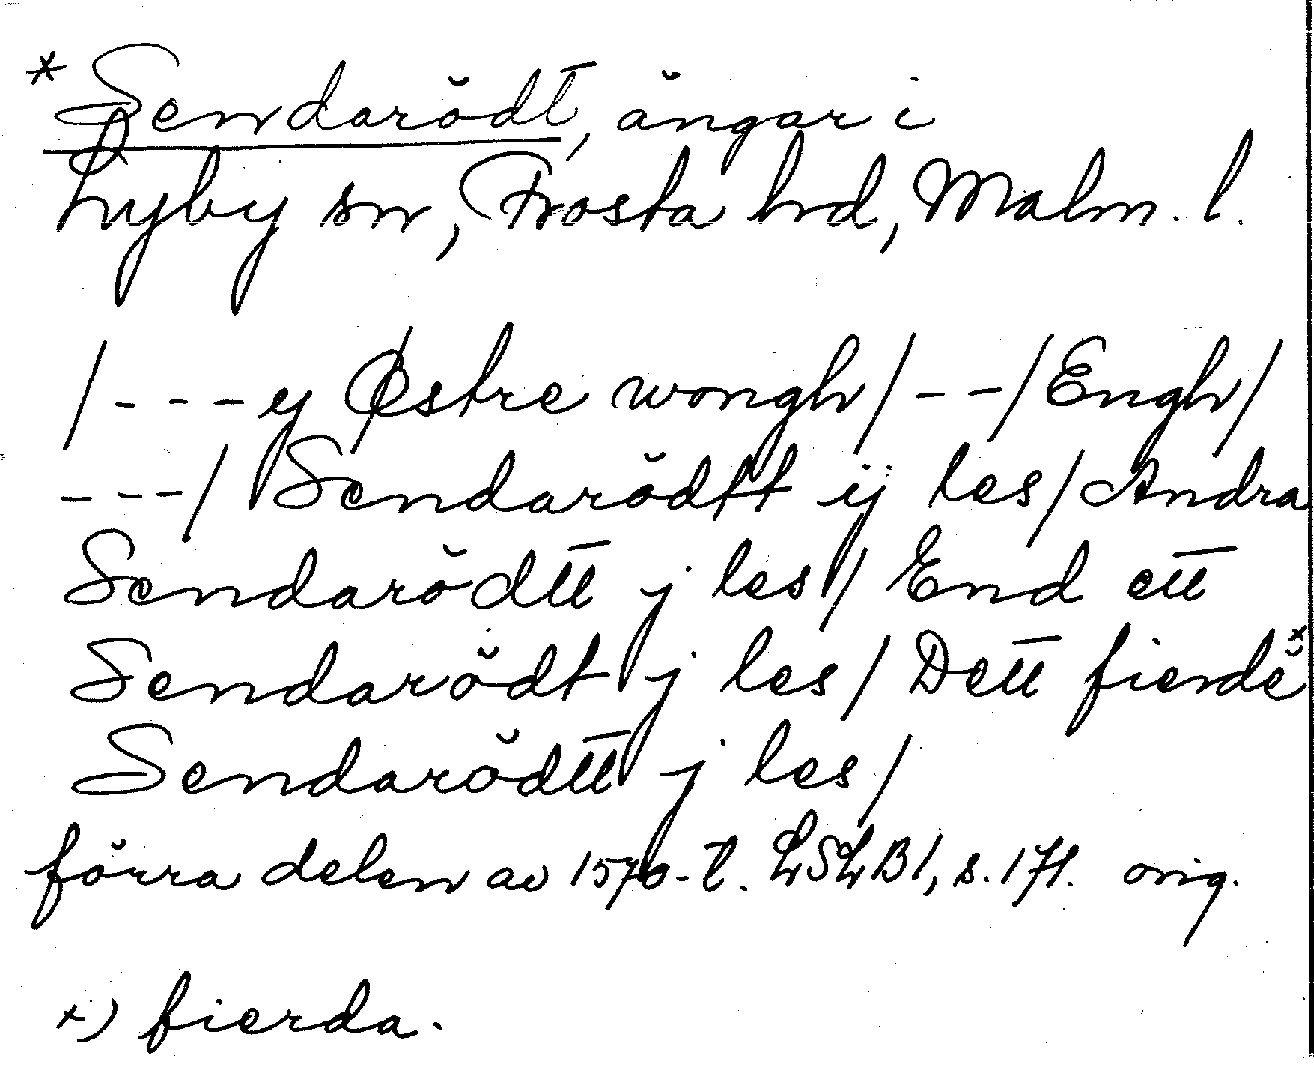 * Sendarödt, ängar i
Lyby sn, Frosta hd, Malm. l.
/---y Østre wongh/--/Engh/
---/ Sendarödtt ij les/ Andra
Sendarödtt j les/ End ett
Sendarödt j les/ Dett fierde*)
Sendarödtt j les/
förra delen av 1570-t. LSLB1, s. 171. orig.
*) fierda.